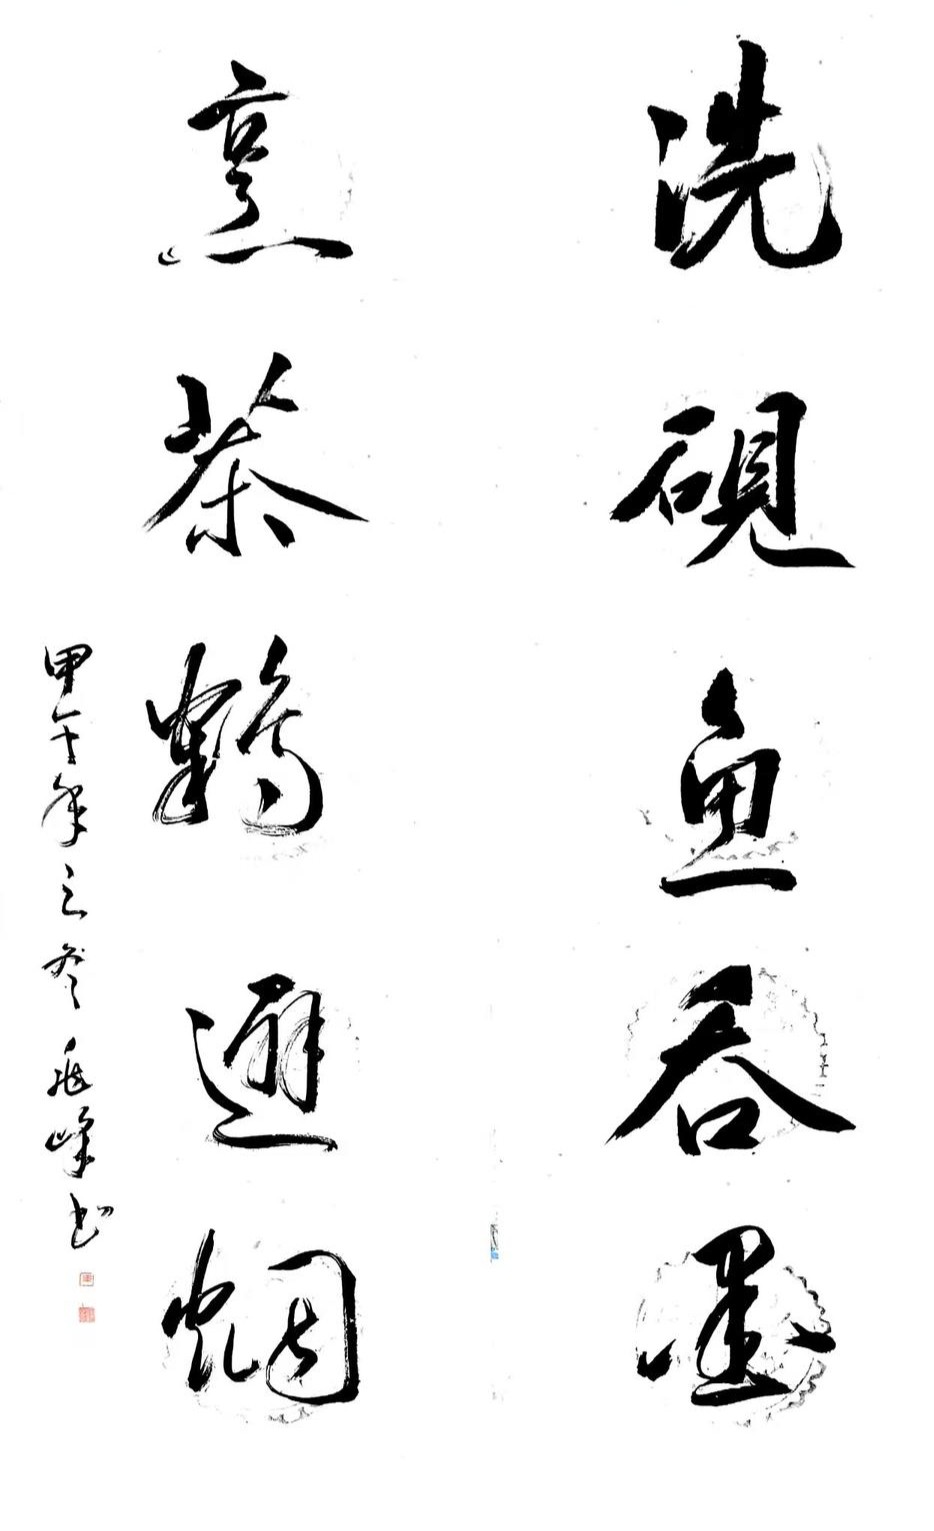 洗砚鱼吞墨
烹茶鹤避烟
甲午年之冬 峰书